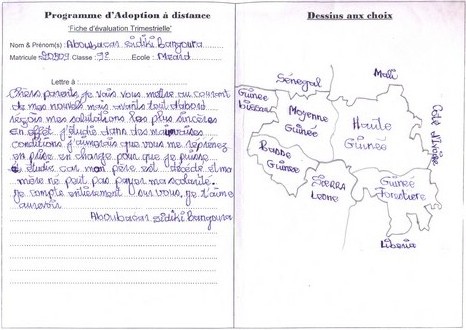 Programme d'Adoption à distance
'Fiche d'évaluation Trimestrielle'
Nom & Prénom(s): Aboubacar Sidiki Bangoura
Matricule: 20909 Classe: 9è Ecole: Meard
Lettre à :
Chers parents je vais vous mettre au courant
de mes nouvels mais avants tout d'abord
reçois mes salutations les plus sincères
En effet j'étudie dans des mauvaises
conditions j'aimerais que vous me reprenez
en prise en charge pour que je puisse
étudie car mon père est décédé et ma
mère né peut pas payer ma scolarité
je compte entièrement sur vous, je t'aime
aurevoir
Aboubacar Sidiki Bangoura
Dessins aux choix
Sénégal
Malli
Guinée
Bissau
Moyenne
Guinée
Haute
Guinée
Cote d'ivoire
Basse
Guinée
Sierra
Leone
Guinee
Forestiere
Liberia